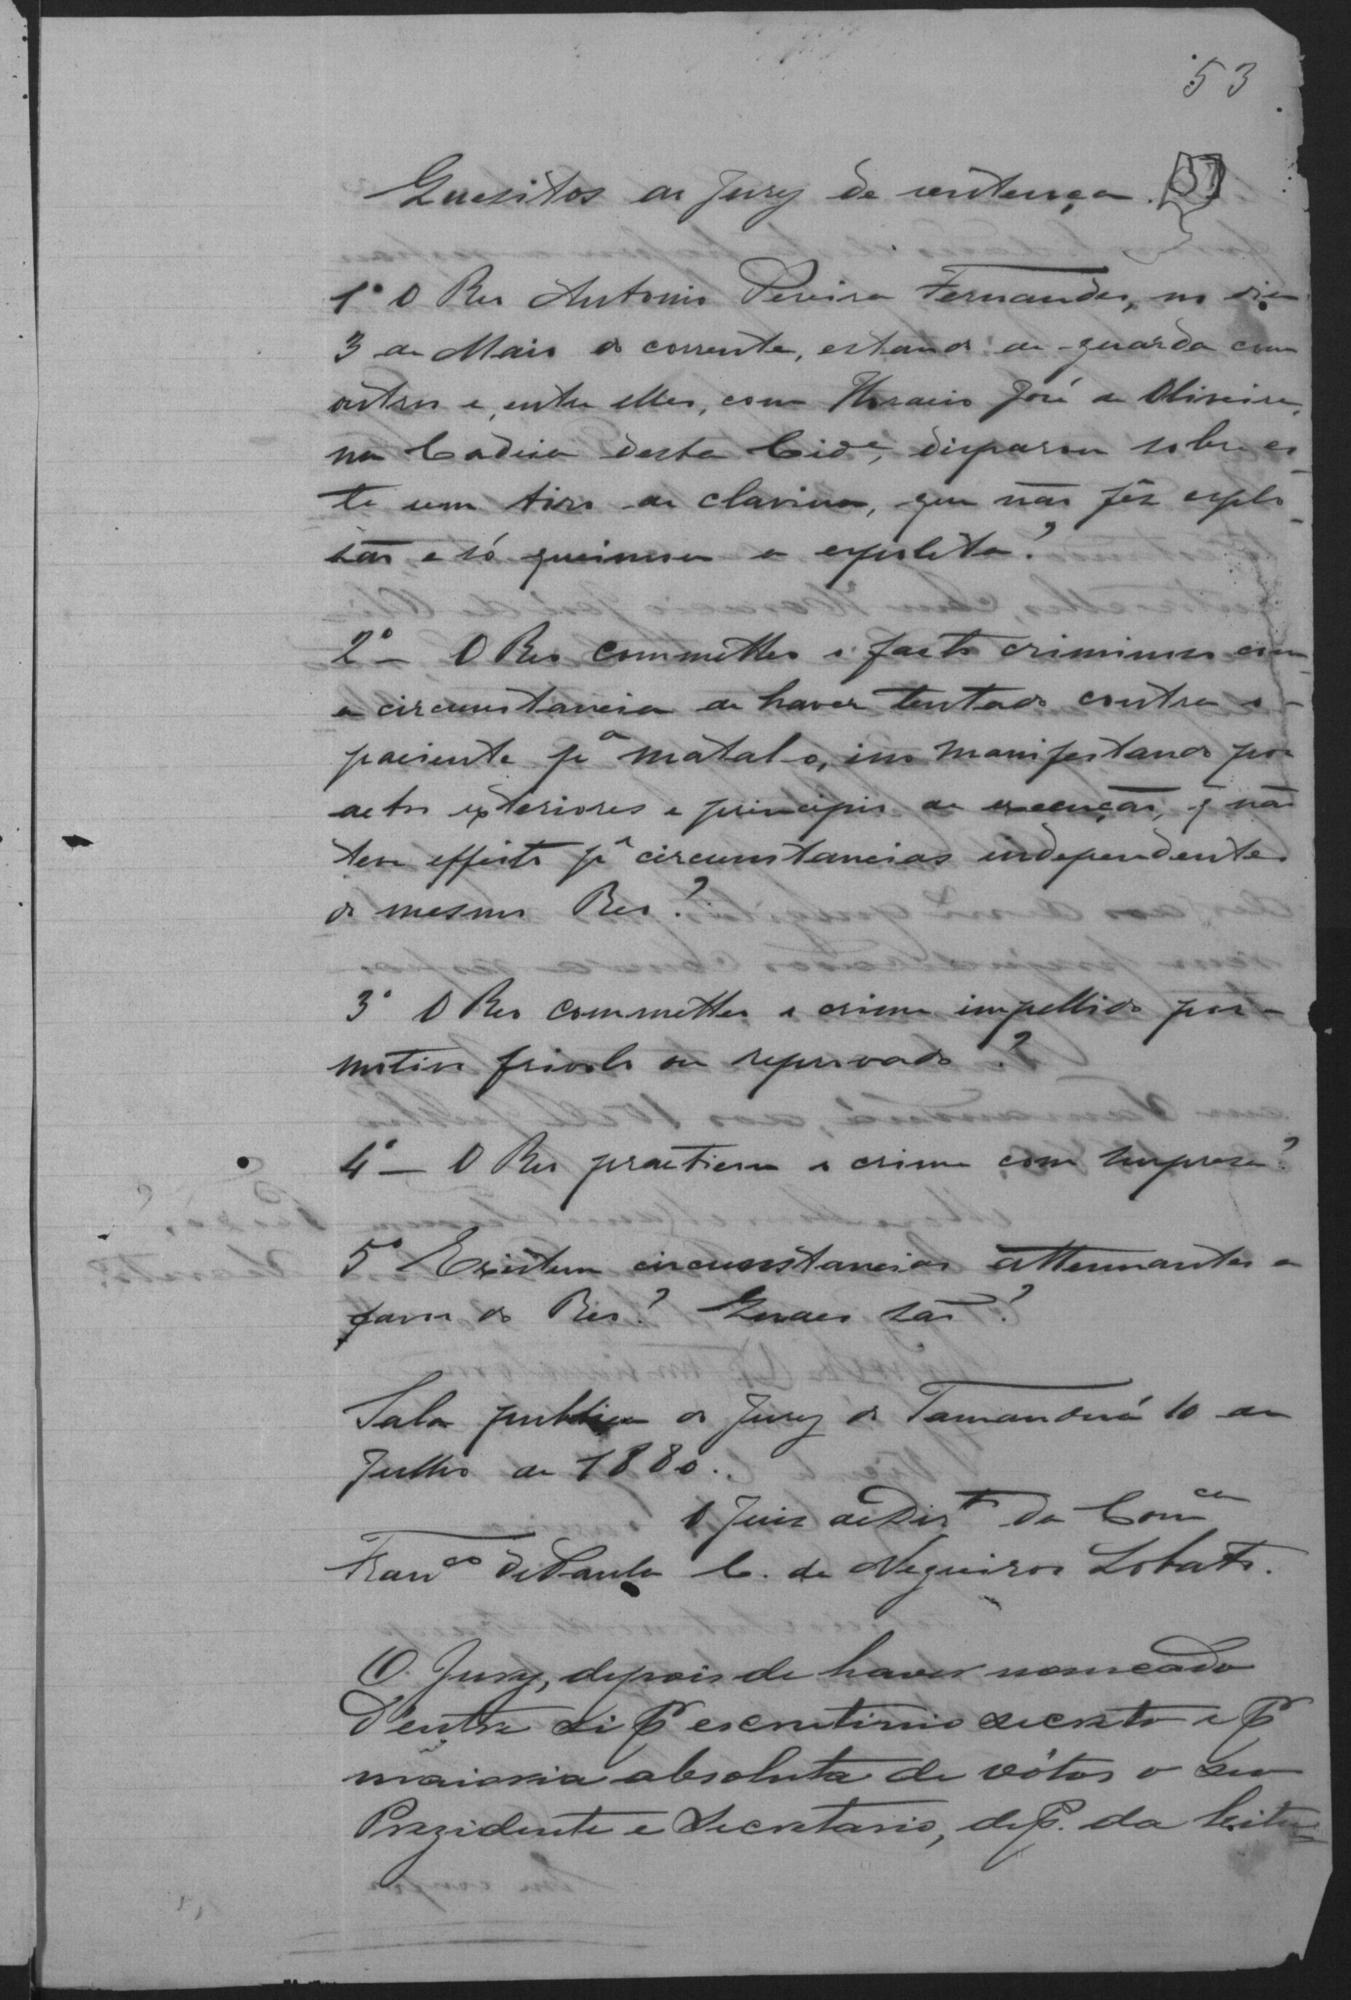 53
Quesitos ao Jury de sentença.
1º O Reo Antonio Pereira Fernandes, no dia
3 de Maio do corrente, estando de guarda com
outros e, entre elles, com Horacio José de Oliveira,
na Cadeia desta Cidᵉ, disparou sobre es-
te um tiro de clavina, que não fêz explo-
são e só queimou a espoleta?
2º — O Reo commetteo o facto criminoso com
a circumstancia de haver tentado contra o
paciente pª matal-o, isso manifestando por
actos exteriores e principio de execução, q̃ não
teve effeito pʳ circumstancias independentes
do mesmo Reo?
3º O Reo commetteo o crime impellido por
motivo frivolo ou reprovado?
4º — O Reo practicou o crime com surpresa?
5º Existem circumstancias attenuantes a
favor do Reo? Quaes são?
Sala publica do Jury de Tamanduá 10 de
Julho de 1880.
O Juiz de Dirᵗᵒ da Comᶜᵃ
Franᶜᵒ de Paula C. de Negueiros Lobato.
O Jury, depois de haver nomeado
d'entre si P escrutinio secreto e P
maioria absoluta de vótos o seu
Prezidente e Secretario, dep. da leitu-